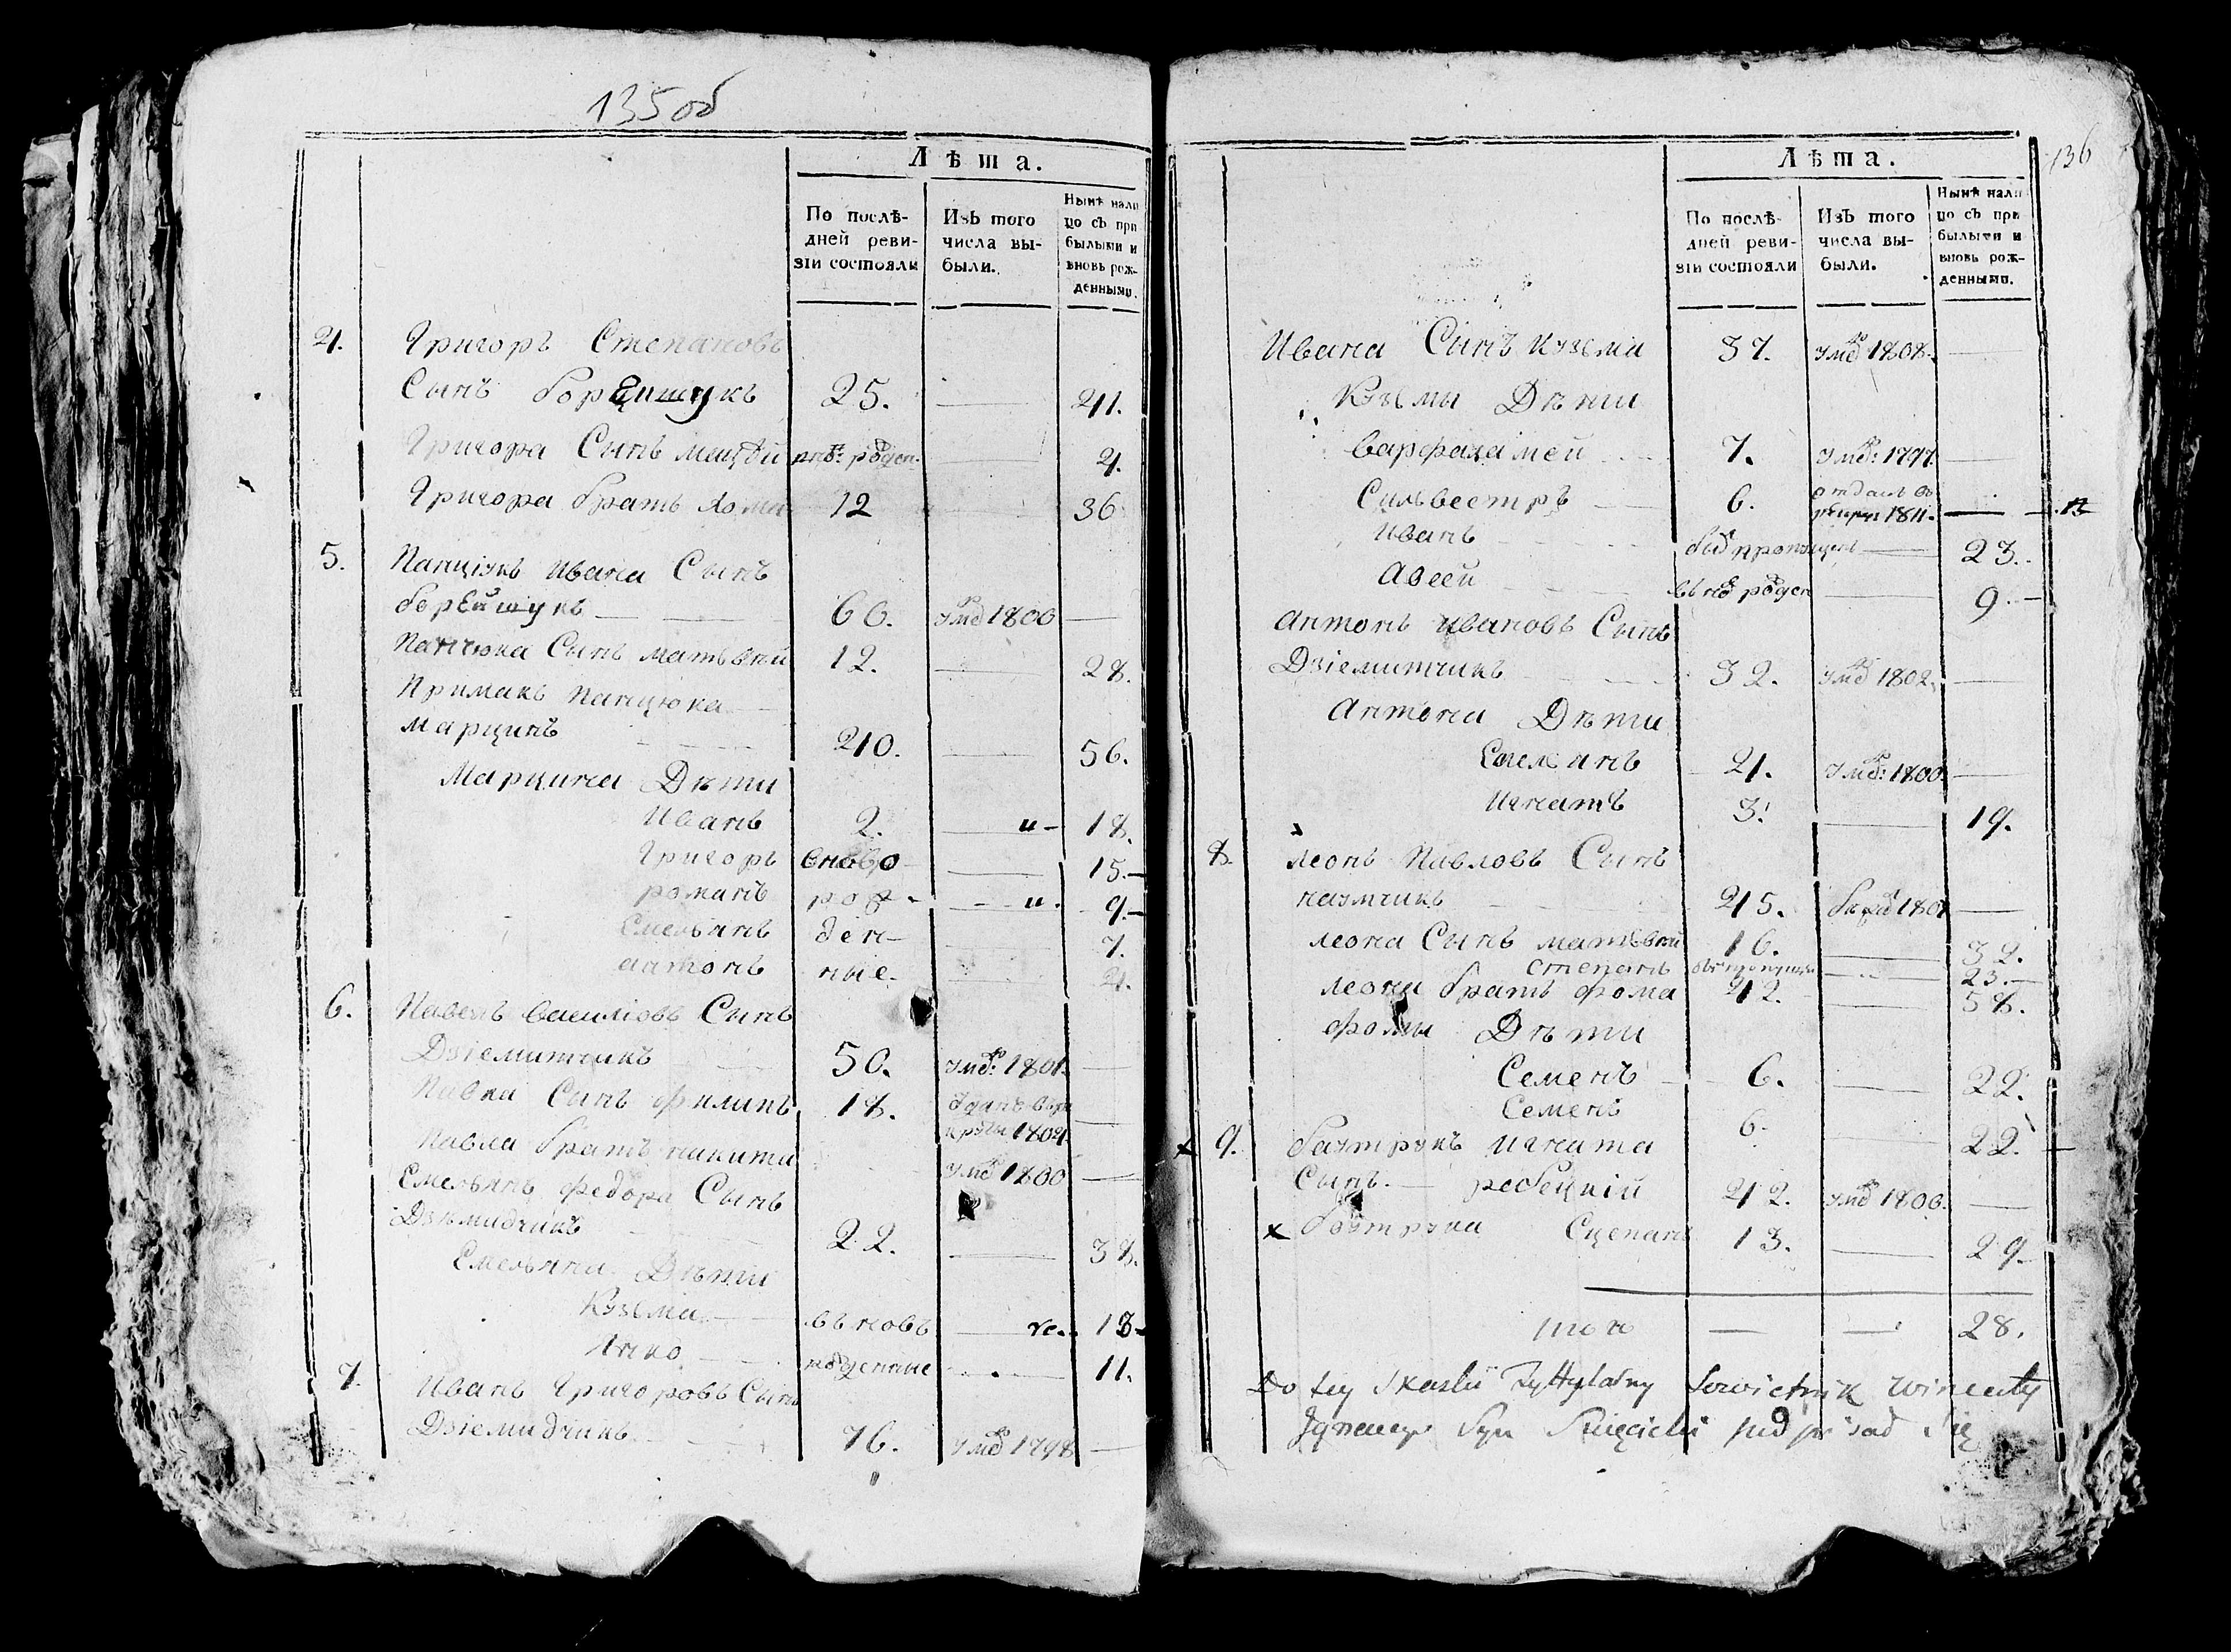 135 об
Лѣта.
По послѣ-
дней реви-
зіи состояли
Изъ того
числа вы-
были.
Нынѣ нали
цо съ при
былыми и
вновь рож-
денными.
4. Григоръ Степановъ
Сынъ борейшукъ 25. 41.
Григора Сынъ Мацѣй 4.
Григора братъ Хома 12 36
5. Панцюкъ Ивана Сынъ
борейшукъ 60. умр 1800
Панцюка Сынъ матвѣй 12. 28.
Примакъ панцюка
марцинъ 40. 56.
Марцина Дѣти
Иванъ 2. и 18.
Григоръ вново 15.
романъ рож- и. 9.
Емельянъ ден- 7.
антонъ ные. 4.
6. Павелъ василіовъ Сынъ
Дзіемитчикъ 50. умр: 1801.
Павла Сынъ филипъ 18. 1804.
Павла братъ никита умр 1800
Емельянъ федора Сынъ
Дзѣмидчикъ 22. 38.
Емельяна Дѣти
Кузьма въновъ 18
Янко рожденные 11.
7. Иванъ Григоровъ Сынъ
Дзіемидчикъ 76. умр 1798
136
Лѣта.
По послѣ-
дней реви-
зіи состояли
Изъ того
числа вы-
были.
Нынѣ нали
цо съ при
былыми и
вновь рож-
денными.
Ивана Сынъ кузьма 37. умр 1808.
Кузьмы Дѣти
варфаламей 7. умр: 1797.
Сильвестръ 6. отданъ въ
рекруты 1811.
Иванъ былъ пропущенъ 23.
Авсей въновъ рожден 9.
Антонъ ивановъ Сынъ
Дзіемитчикъ 32. умр 1802.
Антона Дѣти
Емельянъ 4. умр: 1800.
Игнатъ 3. 19.
8. леонъ Павловъ Сынъ
наумчикъ 45. 1801
леона Сынъ матвѣй 16. 32.
степанъ 23.
леона братъ фома 42. 58.
фомы Дѣти
Семенъ 6. 22.
Семенъ 6. 22.
9. баутрукъ игната
Сынъ. ребецкій 42. умр 1800.
баутрука Сцепанъ 13. 29.
итого 28.
Do tey Skaski Tyttylarny Sowietnik Wincenty
Syn podpisał się